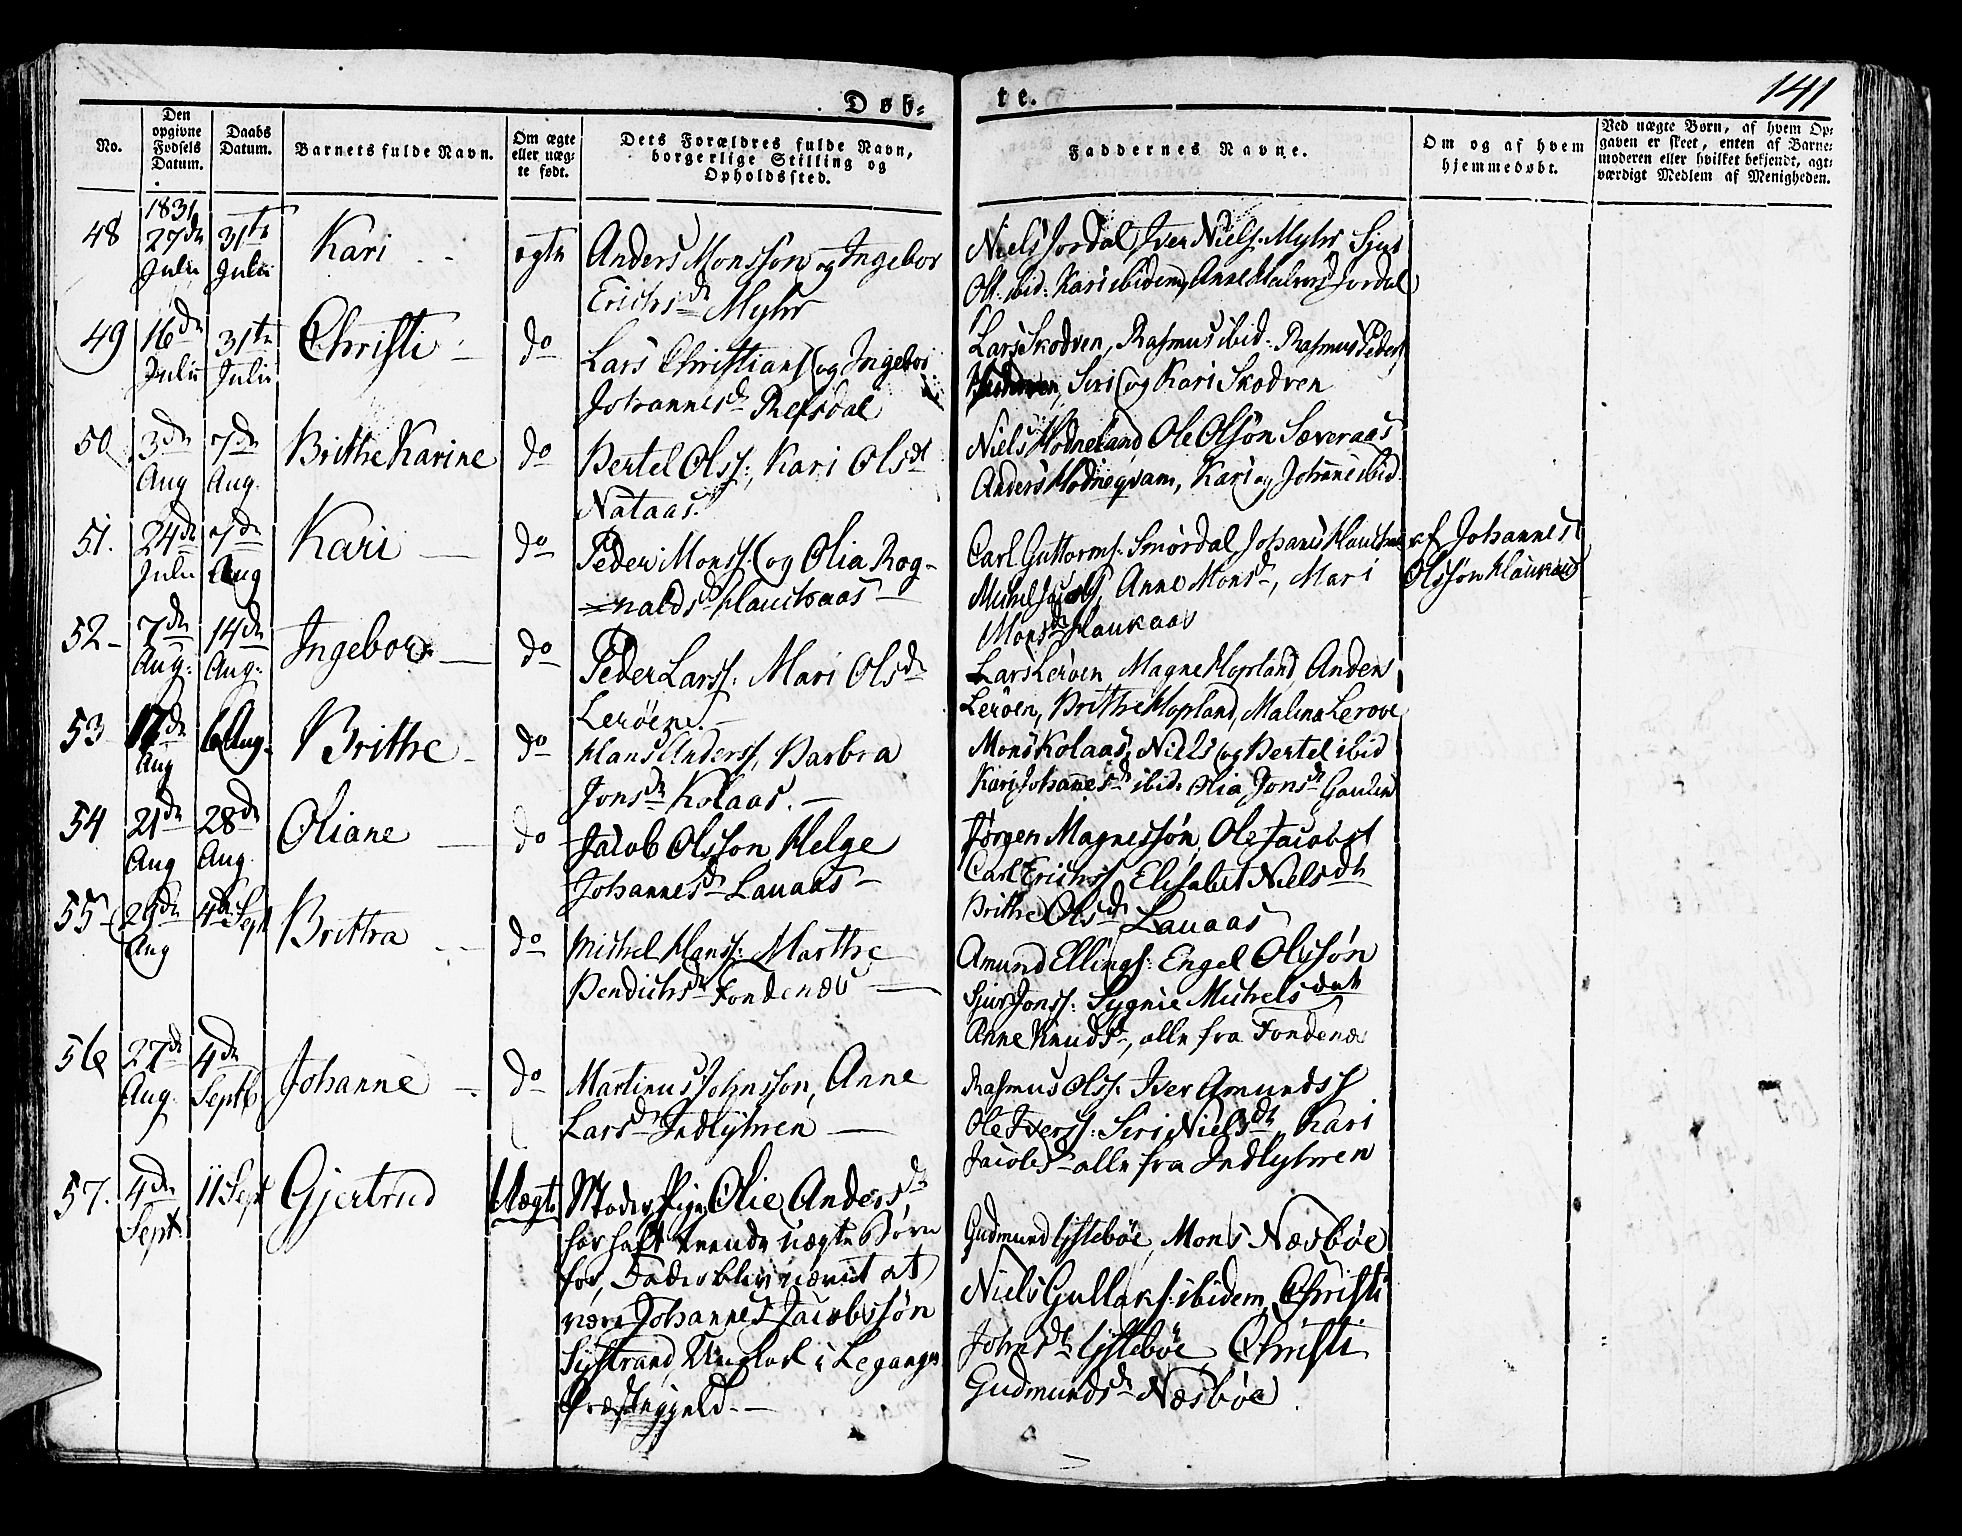 Døb-
te.
141
No.
Den opgivne Fødsels Datum.
Daabs Datum.
Barnets fulde Navn.
Om ægte eller uæg-te født.
Dets Forældres fulde Navn, borgerlige Stilling og Opholdssted.
Faddernes Navne.
Om og af hvem hjemmedøbt.
Ved uægte Børn, af hvem Op-gaven er skeet, enten af Barne-moderen eller hvilket bekjendt, agt-værdigt Medlem af Menigheden.
1831
48 27de Julii 31te Julii Kari ægte Anders Monsson og Ingebor
Erichsdr Myhr
Niels Jordal, Iver Niels. Myhr
Ols. ibid: Kari ibidem, Anne Jordal
49 16de Julii 31te Julii Christi do Lars Christians og Ingebor
Johannesdr Refsdal
Lars Skodven, Rasmus ibid: Rasmus Peders
Siri og Kari Skodven
50 3de Aug 7de Aug. Brithe Karine do Bertel Olss:, Kari Olsdt
Nataas.
Niels Hodneland, Ole Olsøn Sæveraas
Anders Hodneqvam, Kari og Johanne ibid.
51. 24de Julii 7de Aug Kari do Peder Monss: og Olia Rog-
=naldsd Haukaas
Carl Guttorms: Smørdal
Anne Monsd, Mari
Monsd Haukaas
af Johannes
Olssøn Haukaas
52 7de Aug: 14de Aug: Ingebor do Peder Larss: Mari Olsdr
Lerøen.
Lars Lerøen, Magne Hopland, Anders
Lerøen, Brithe Hopland, Malina Lerøe
53 17de Aug 6 Aug. Brithe do Hans Anderss, Barbra
Jonsdr Kolaas.
Mons Kolaas, Niels og Bertel ibid
Kari Johannesd ibid. Olia Jonsd
54 21de Aug 28de Aug. Oliane do Jacob Olsson, Helge
Johannesd Lauaas
Jørgen Magnessøn, Ole Jacobs
Carl Erichss, Elisabet Nielsdtr
Brithe Olsd Lauaas
55 Aug 4de Sept Brithra do Michel Hanss: Marthe
Bendichsd Fondenæs
Amund Ellings: Engel Olssøn
Jonss: Sygnie Michelsdat
Anne Knudsd, alle fra Fondenæs
56 27de Aug. 4de Septb. Johanne do Martinus Johnsson, Anne
Larsd Indlyhren
Rasmus Olss. Iver Amundss
Ole Iverss: Siri Nielsdtr, Kari
Jacobsd alle fra Indlyhren
57. 4de Sept. 11 Sept Gjertrud Uægte Moder Pige Olie Andersdr
har haft trende uægte Børn
før, Fader blev nævnt at
være Johannes Jacobssøn
Systrand, Ungkarl i Leganger
Præstegjeld.
Gudmund Ystebøe, Mons Næsbøe
Niels Gullaks: ibidem, Christi
Johnsd Ystebøe, Christi
Gudmundsdr Næsbøe.